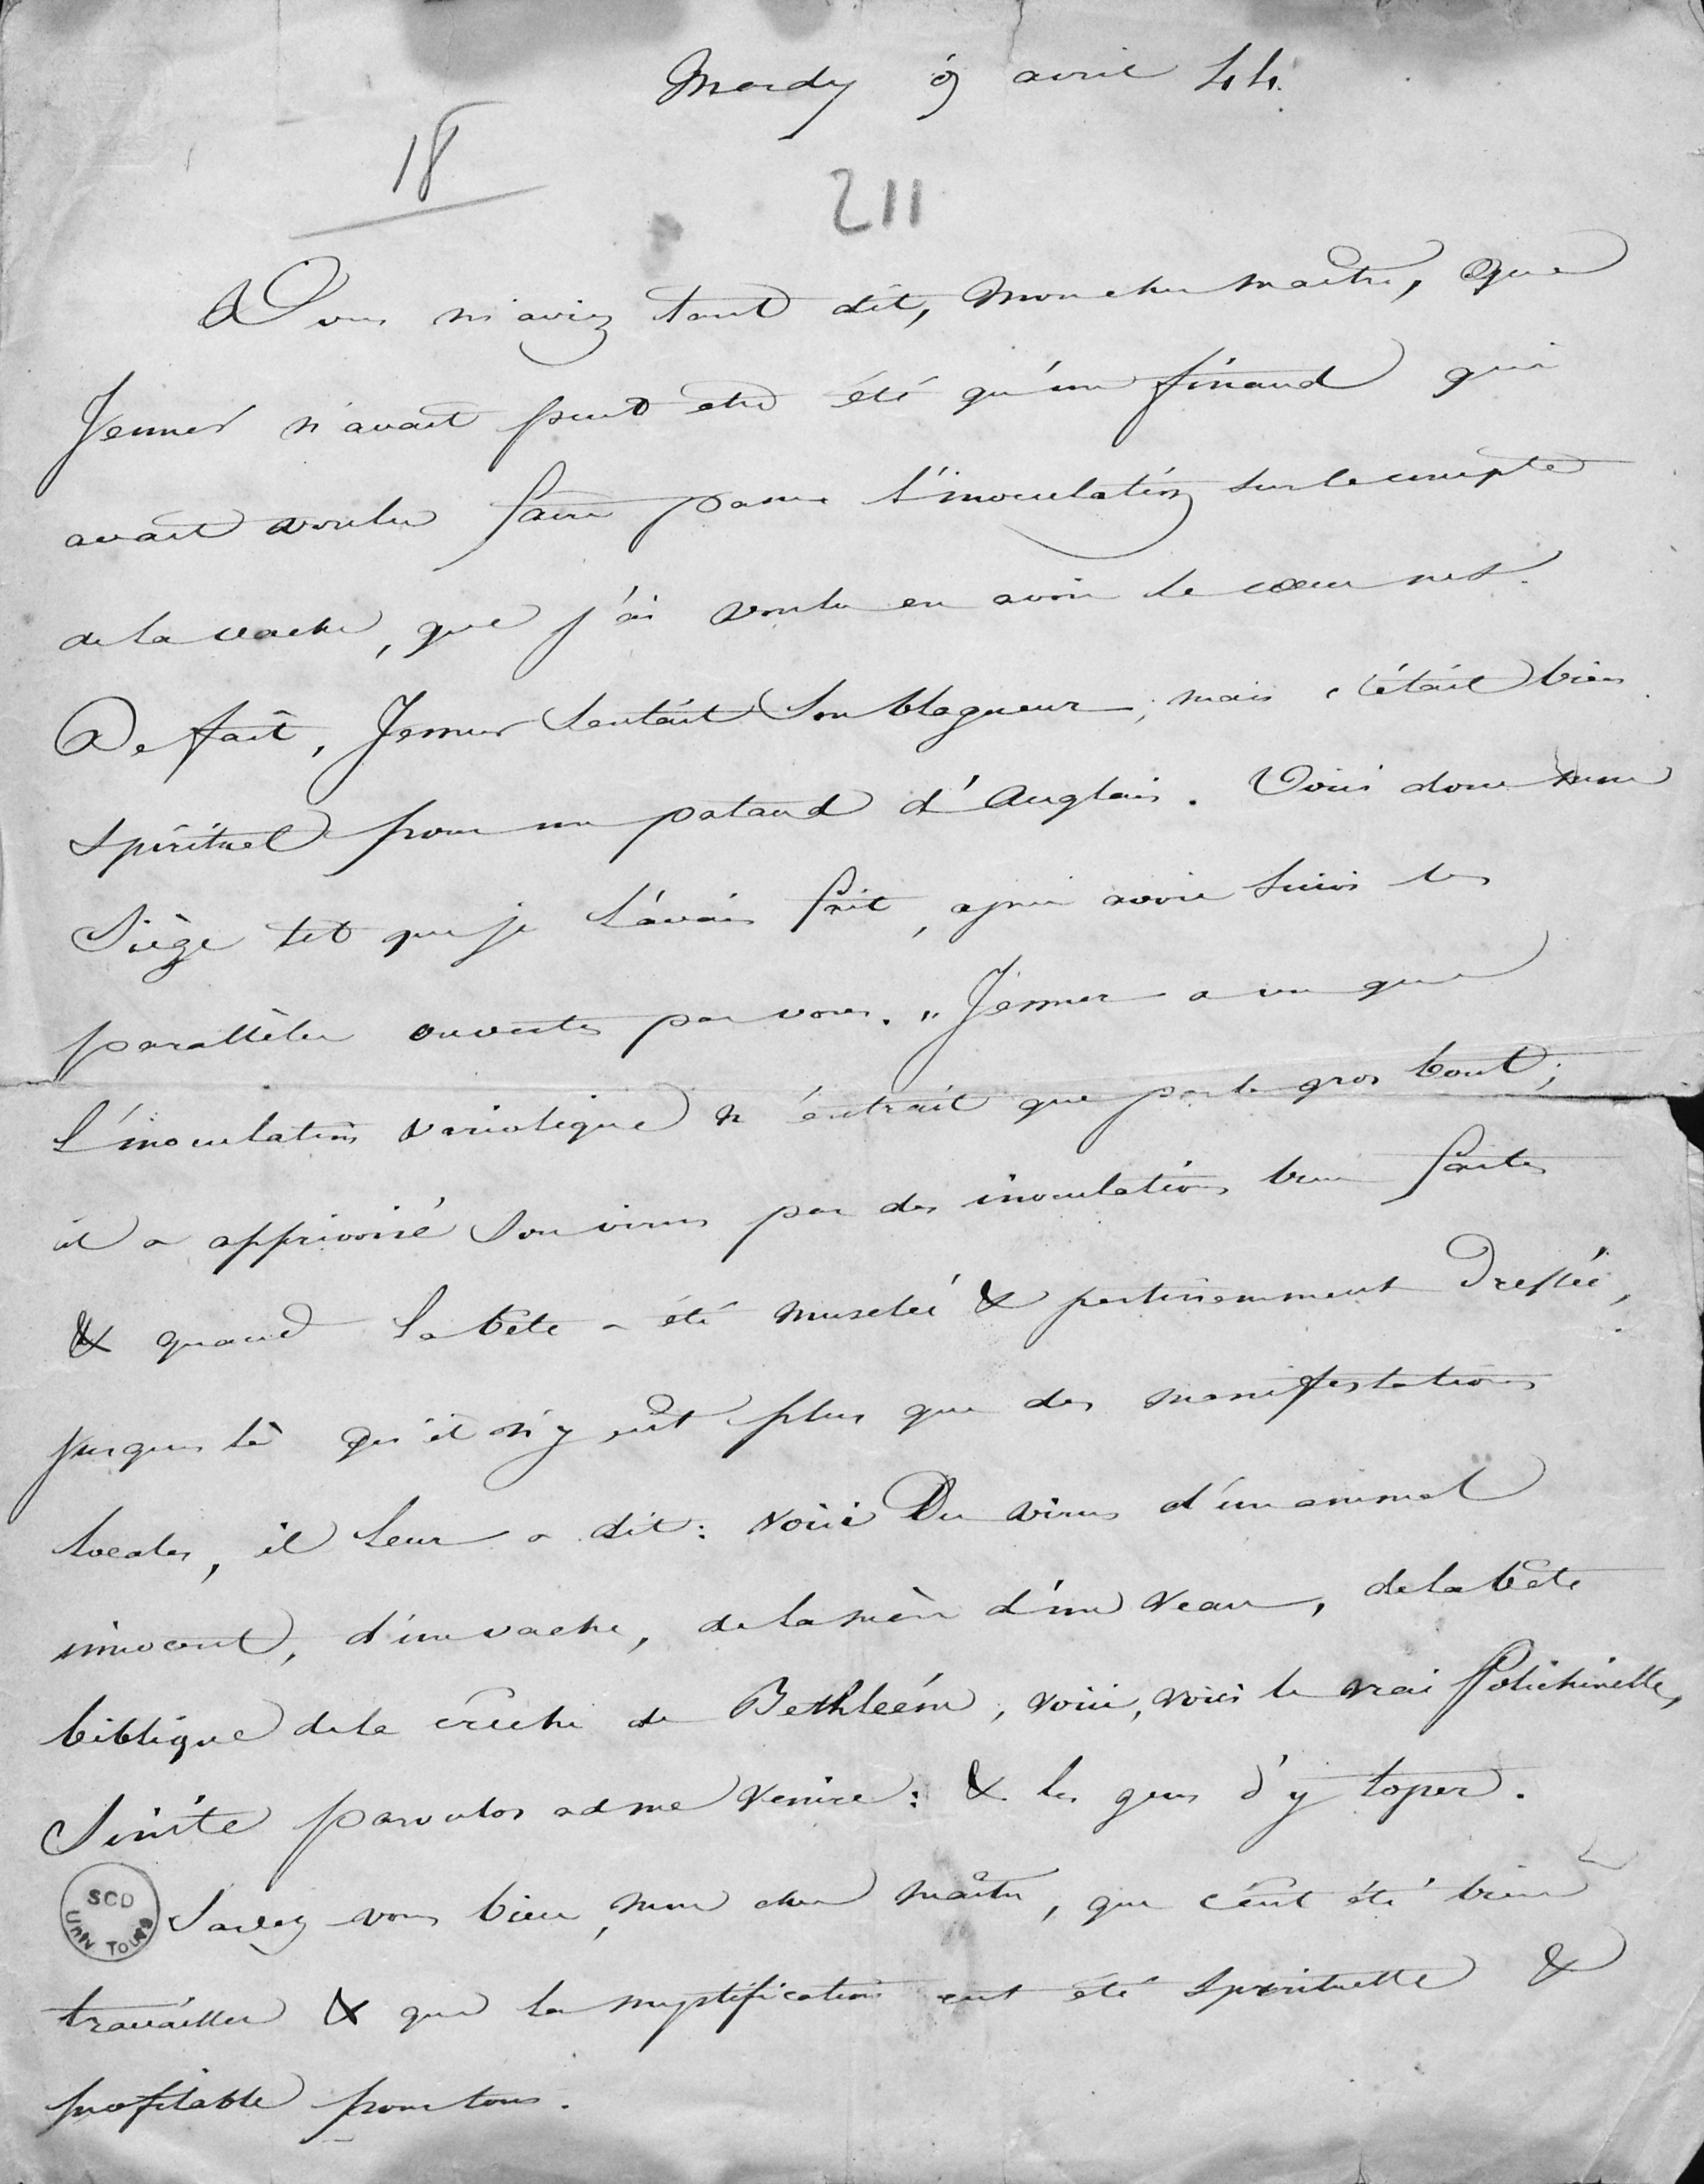 Mardy 9 avril 44.
18
211
Vous m'aviez tant dit, mon cher maître, que
Jenner n'avait peut etre été qu'un finaud qui
avait voulu faire passer l'inoculation sur le compte
de la vache, que j'ai voulu en avoir le cœur net.
De fait, Jenner sentait son blagueur; mais c'était bien
spirituel pour un pataud d'Anglais. Voici donc mon
siège tel que je l'avais fait, après avoir suivi les
parallèles ouvertes par vous. "Jenner a vu que
l'inoculation variolique n'entrait que par le gros bout;
il a apprivoisé son virus par des inoculations bien faites
& quand la bête a été muselée & pertinemment dressée,
jusques là qu'il n'y eût plus que des manifestations
locales, il leur a dit: voici du virus d'un animal
innocent, d'une vache, de la mère d'un veau, de la bête
biblique de la crèche de Bethléem, voici, voici le vrai Polichinelle,
Sinite parvulos ad me venire: & les gens d'y toper.
SCD UNIV TOURS
Savez vous bien, mon cher maître, que c'eût été bien
travailler & que la mystification eut été spirituelle &
profitable pour tous.